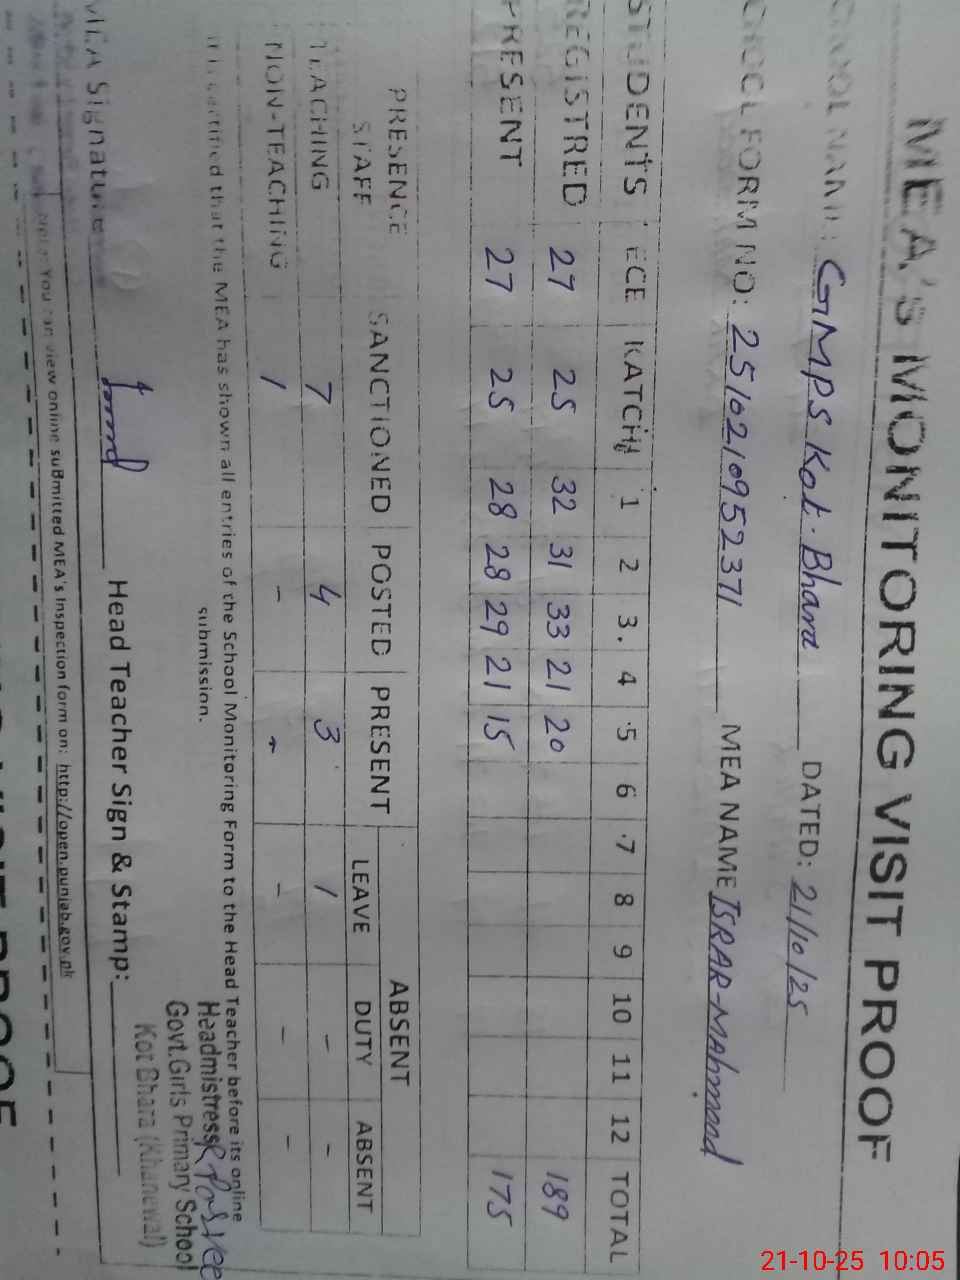 MEA's MONITORING VISIT PROOF
SCHOOL NAME: GMPS Kot. Bhara DATED: 21/10/25
SCHOOL FORM NO: 2510210952371 MEA NAME ISRAR-Mahmood
STUDENTS ECE KATCHI 1 2 3. 4 5 6 7 8 9 10 11 12 TOTAL
REGISTRED 27 25 32 31 33 21 20 189
PRESENT 27 25 28 28 29 21 15 175
PRESENCE ABSENT
STAFF SANCTIONED POSTED PRESENT LEAVE DUTY ABSENT
TEACHING 7 4 3 1 - -
NON-TEACHING 1 - - - - -
It is certified that the MEA has shown all entries of the School Monitoring Form to the Head Teacher before its online
submission.
MEA Signature Head Teacher Sign & Stamp:
Headmistress
Govt.Girls Primary School
Kot Bhara (Khanewal)
Note: You can view online suBmitted MEA's Inspection form on: http://open.punjab.gov.pk
21-10-25 10:05